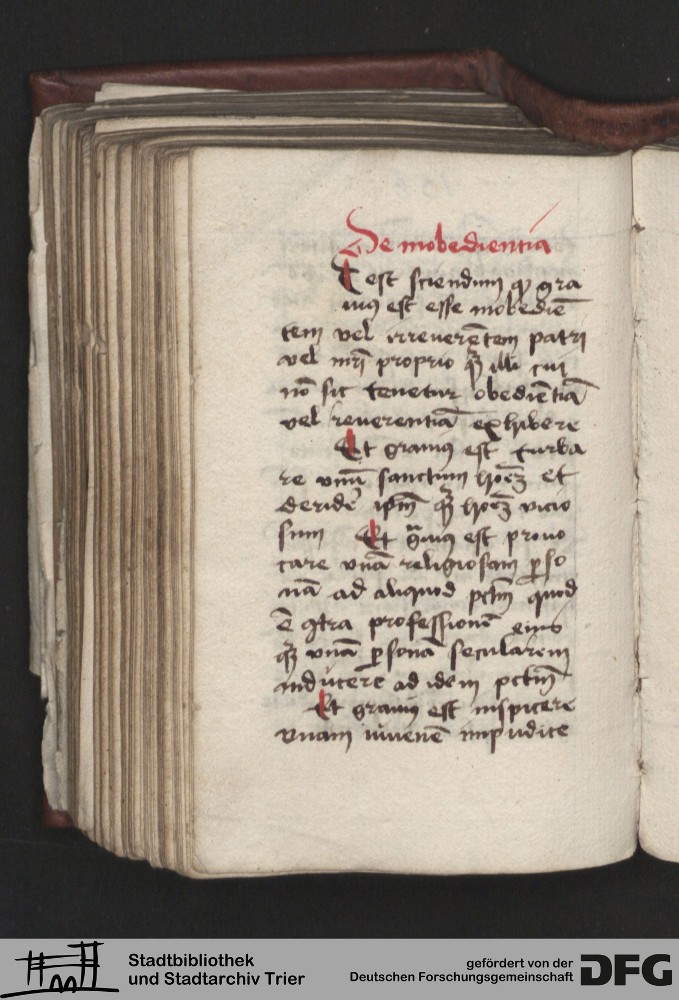 De inobedientia
Et est sciendum qꝫ gra
uius est esse inobediē
tem vel irreuerētem patri
vel mr̄i proprio qͣꝫ illi cui
nō sic tenetur obediētiā
vel reuerentiā exhibere
Et grauius est turba
re vnū sanctum hoīeꝫ et
deridē ip̄m qͣꝫ hoīeꝫ vicio
sum Et gͣuius est prouo
care vnā religiosam ꝑso
nā ad aliquod pctm̄ quod
ē ꝯtra professionē eius
qͣꝫ vnā ꝑsonā secularem
inducere ad idem pctm̄
Et grauius est inspicere
vnam iuuenē impudice
Stadtbibliothek
und Stadtarchiv Trier
gefördert von der
Deutschen Forschungsgemeinschaft
DFG